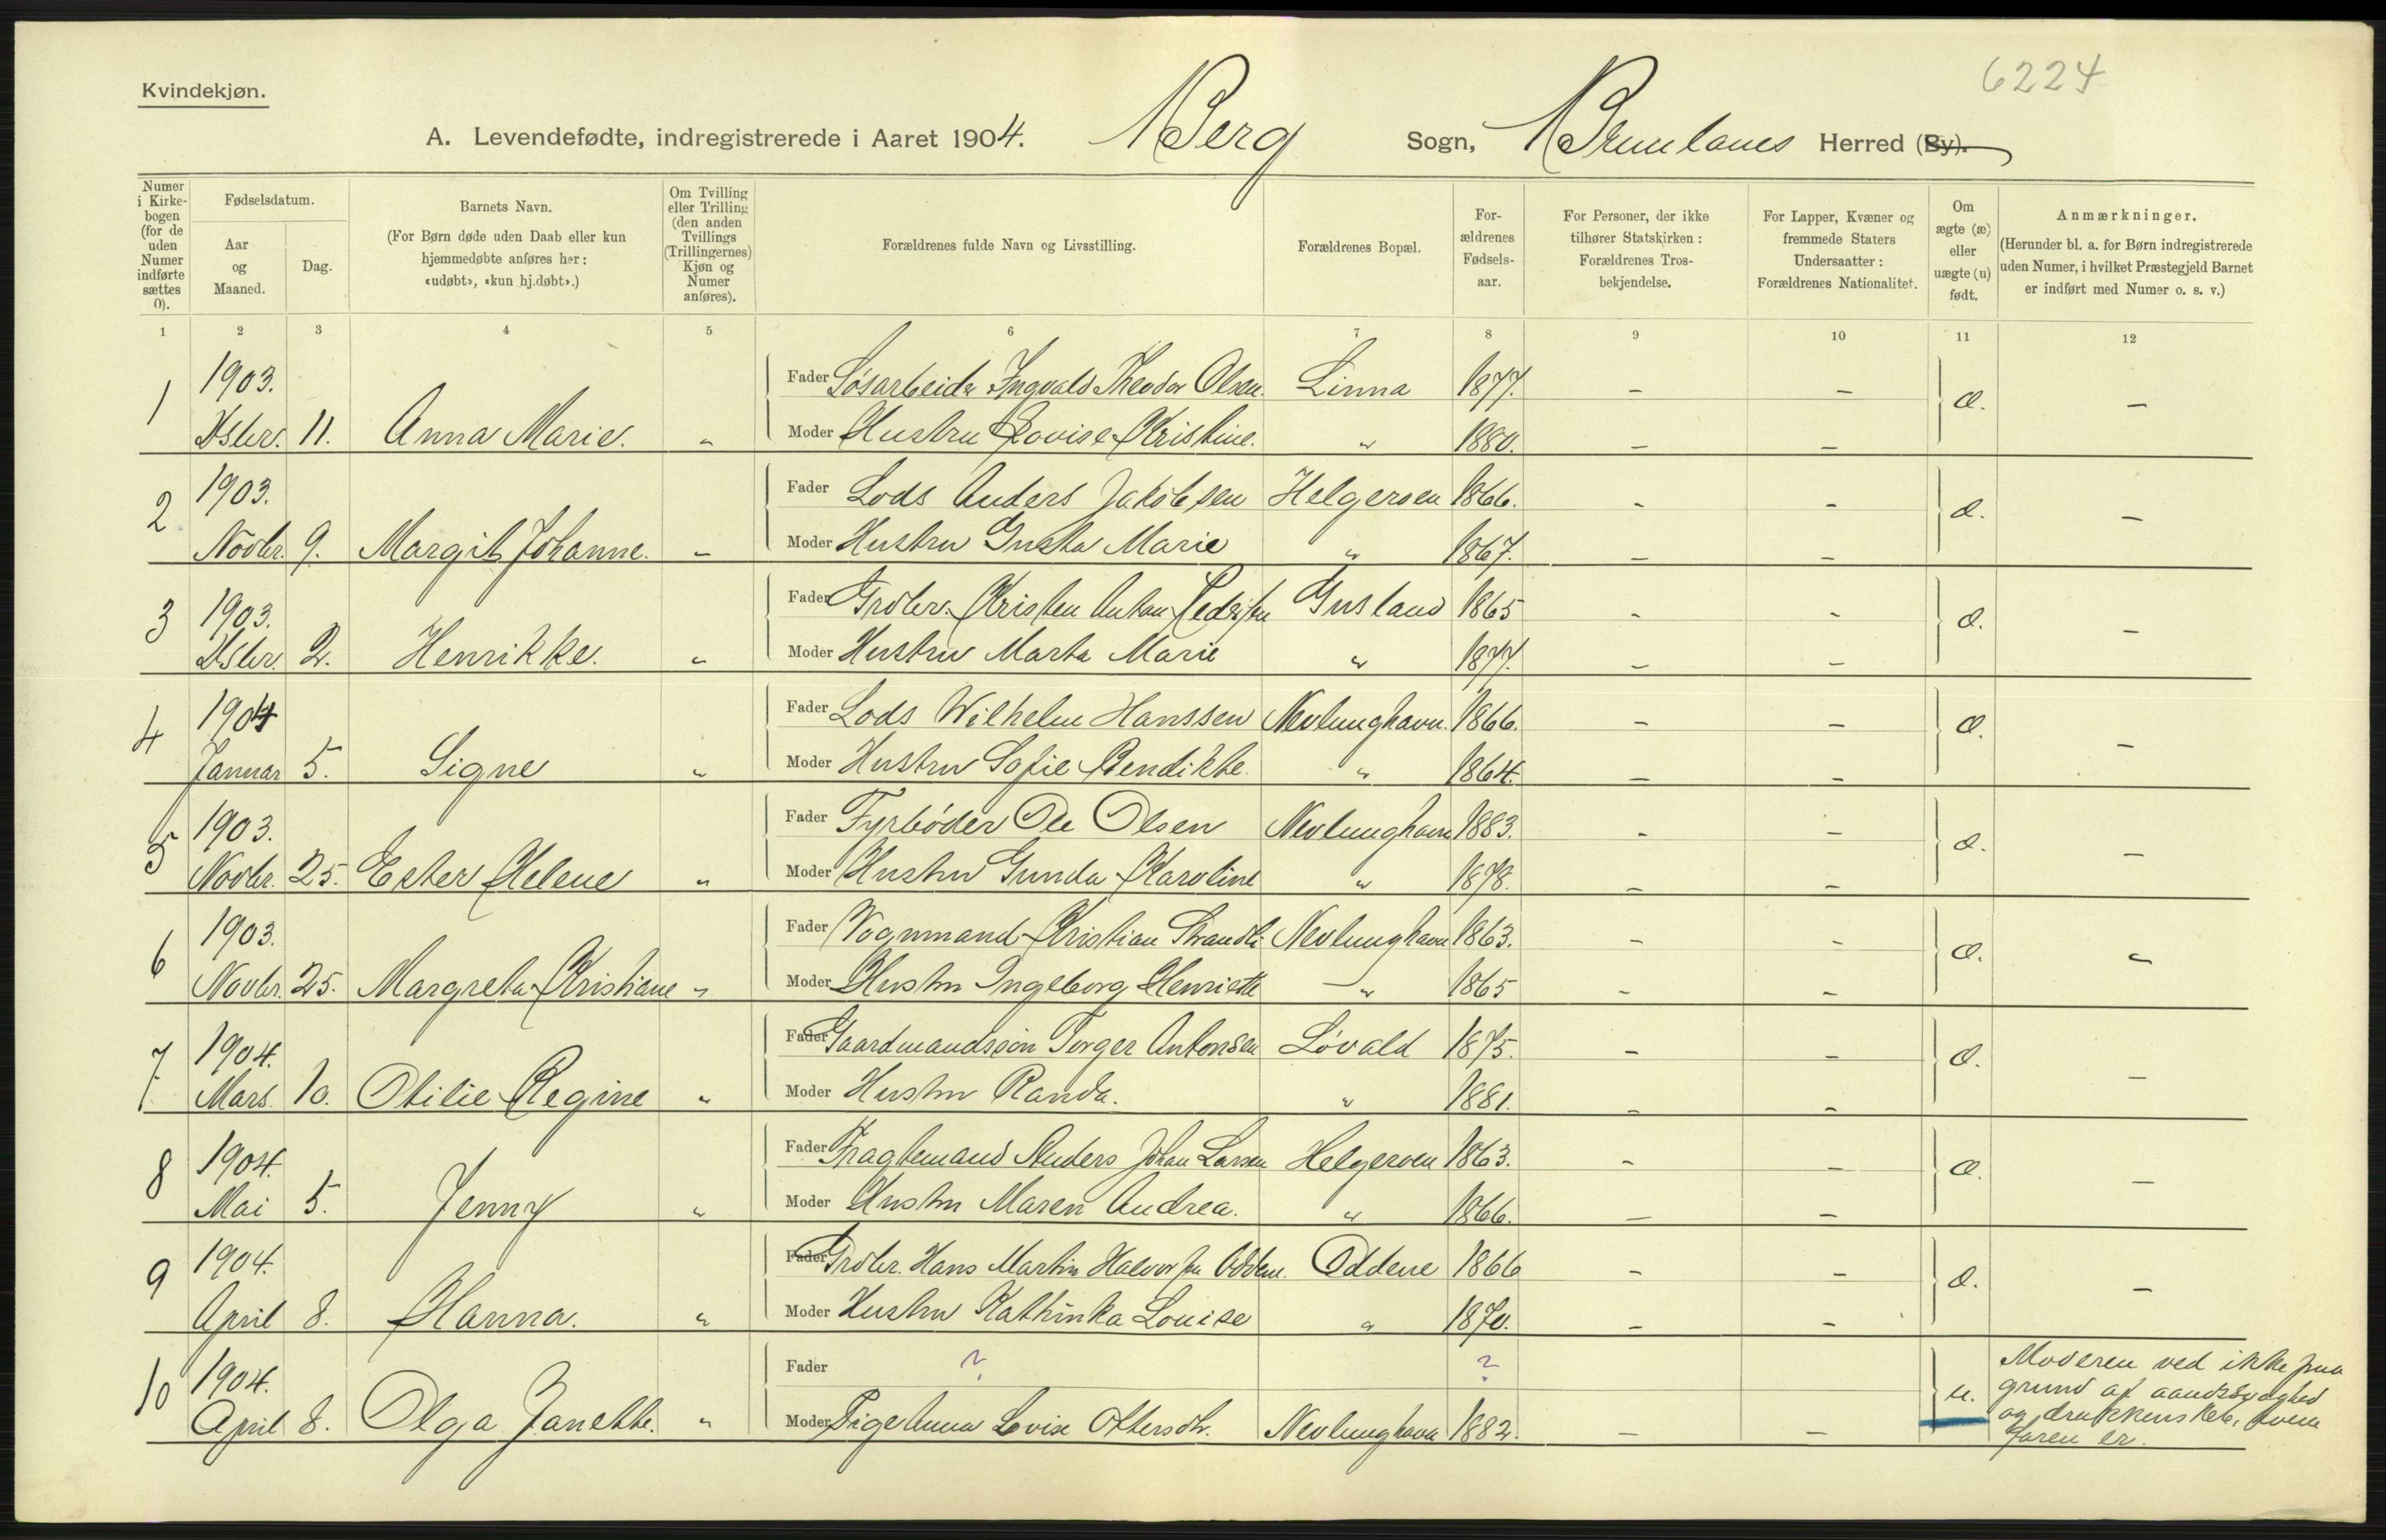 6224
Kvindekjøn.
A. Levendefødte, indregistrerede i Aaret 1904. Berg Sogn, Brunlanes Herred (By).
Numer i Kirkebogen (for de uden Numer indførte sættes 0).
Fødselsdatum.
Aar og Maaned.
Dag.
Barnets Navn.
(For Børn døde uden Daab eller kun hjemmedøbte anføres her: «udøbt», «kun hj.døbt».)
Om Tvilling eller Trilling (den anden Tvillings (Trillingernes) Kjøn og Numer anføres).
Forældrenes fulde Navn og Livsstilling.
Forældrenes Bopæl.
Forældrenes Fødselsaar.
For Personer, der ikke tilhører Statskirken: Forældrenes Trosbekjendelse.
For Lapper, Kvæner og fremmede Staters Undersaatter: Forældrenes Nationalitet.
Om ægte (æ) eller uægte (u) født.
Anmærkninger.
(Herunder bl. a. for Børn indregistrerede uden Numer, i hvilket Præstegjeld Barnet er indført med Numer o. s. v.)
1 2 3 4 5 6 7 8 9 10 11 12
1 1903. Fader Løsarbeider Ingvald Theodor Olsen. Linna 1877. – – æ. –
Dsbr. 11. Anna Marie. " Moder Hustru Lovise Kristine. " 1880. – –
2 1903. Fader Lods Anders Jakobsen Helgeroen 1866. – – æ. –
Novbr. 9. Margit Johanne. – Moder Hustru Gusta Marie " 1867. – –
3 1903. Fader Grdbr. Kristen Anton Pedersen Gusland 1865 – – æ. –
Dsbr. 2. Henrikke. " Moder Hustru Marta Marie " 1877. – –
4 1904 Fader Lods Wilhelm Hanssen Nevlunghavn. 1866. – – æ. –
Januar 5. Signe " Moder Hustru Sofie Bendikte. " 1864. – –
5 1903. Fader Fyrbøder Ole Olsen Nevlunghavn 1883. – – æ. –
Novbr. 25. Ester Helene " Moder Hustru Gunda Karoline " 1878. – –
6 1903. Fader Vognmand Kristian Strandli Nevlunghavn 1863. – – æ. "
Novbr. 25. Margreta Kristiane " Moder Hustru Ingeborg Henriette " 1865 – –
7 1904. Fader Gaardmandssøn Torger Antonsen Løvald 1875. – – æ. –
Mars 10. Otilie Regine " Moder Hustru Randa. " 1881. – –
8 1904. Fader Fragtemand Anders Johan Larsen Helgeroen 1863. – – æ. –
Mai 5. Jenny " Moder Hustru Maren Andrea. " 1866. – –
9 1904. Fader Grdbr. Hans Martin Halvorsen Oddene. Oddene 1866 – – æ. –
April 8. Hanna. " Moder Hustru Kathinka Louise " 1870. – –
10 1904. Fader ? ? u. Moderen ved ikke paa
grund af aandssvaghed
April 8. Olga Janette. " Moder Pige Anna Lovise Ottersdtr. Nevlunghavn 1882. – – og drukkenskab, hvem
faren er.